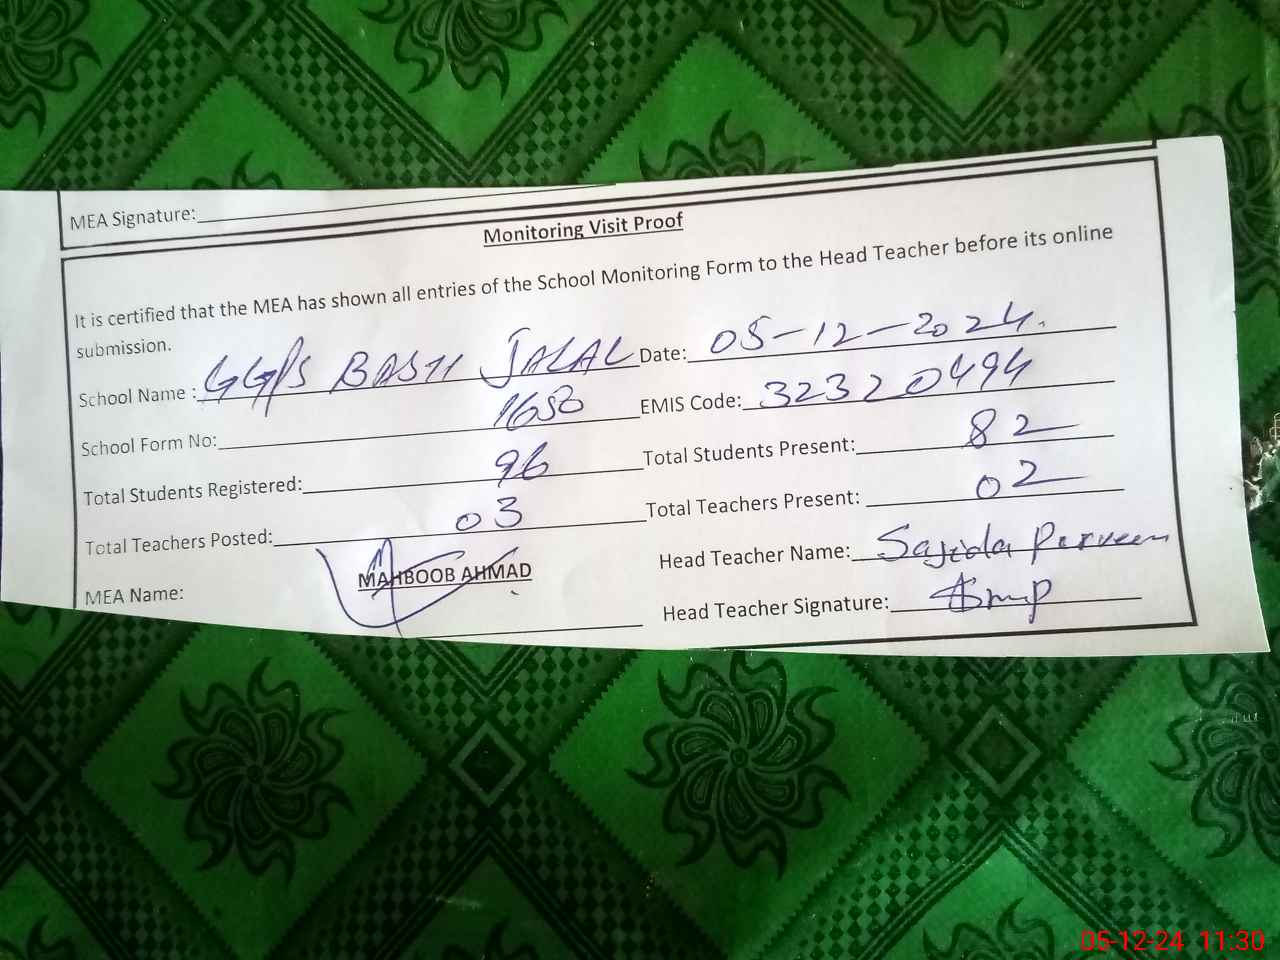 MEA Signature:
Monitoring Visit Proof
It is certified that the MEA has shown all entries of the School Monitoring Form to the Head Teacher before its online
submission.
School Name : GGPS BASTI JALAL Date: 05-12-2024.
School Form No: 1650 EMIS Code: 32320494
Total Students Registered: 96 Total Students Present: 82
Total Teachers Posted: 03 Total Teachers Present: 02
MEA Name: MAHBOOB AHMAD Head Teacher Name: Sajida Parveen
Head Teacher Signature:
05-12-24 11:30